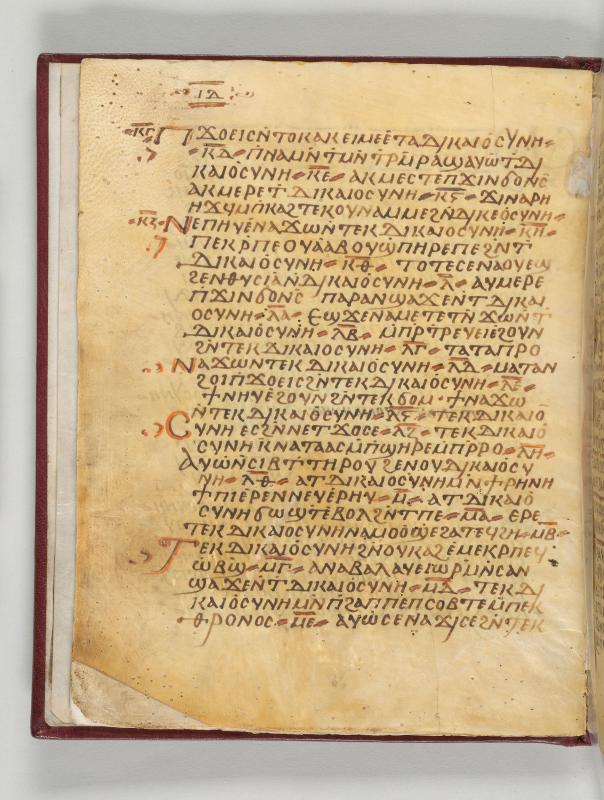 ⲓⲇ
ⲕⲅ ⲡϫⲟⲉⲓⲥ ⲛⲧⲟⲕ ⲁⲕⲉⲓⲙⲉ ⲉⲧⲁⲇⲓⲕⲁⲓⲟⲥⲩⲛⲏ
ⲕⲇ ⲡⲛⲁ ⲙⲛ ⲧⲙⲛⲧⲣⲙⲣⲁϣ ⲁⲩⲱ ⲧⲇⲓ
ⲕⲁⲓⲟⲥⲩⲛⲏ ⲕⲉ ⲁⲕⲙⲉⲥⲧⲉ ⲡϫⲓⲛϭⲟⲛⲥ
ⲁⲕⲙⲉⲣⲉ ⲧⲇⲓⲕⲁⲓⲟⲥⲩⲛⲏ ⲕⲋ
ⲕⲍ ⲧⲉⲕⲇⲓⲕⲁⲓⲟⲥⲩⲛⲏ ⲕⲏ
ⲡⲉⲕⲣⲡⲉ ⲟⲩⲁⲁⲃ ⲟⲩϣⲡⲏⲣⲉ ⲡⲉ ϩⲛ ⲧ
ⲇⲓⲕⲁⲓⲟⲥⲩⲛⲏ ⲕⲑ ⲧⲟⲧⲉ ⲥⲉⲛⲁⲟⲩⲉϣ
ϩⲉⲛⲑⲩⲥⲓⲁ ⲛⲇⲓⲕⲁⲓⲟⲥⲩⲛⲏ ⲗ ⲁⲩⲙⲉⲣⲉ
ⲡϫⲓⲛϭⲟⲛⲥ ⲡⲁⲣⲁ ⲛϣⲁϫⲉ ⲛⲧⲇⲓⲕⲁⲓ
ⲟⲥⲩⲛⲏ ⲗⲁ ⲉϣϫⲉ ⲛⲁⲙⲉ ⲧⲉⲧⲛϫⲱ ⲛⲧ
ⲇⲓⲕⲁⲓⲟⲥⲩⲛⲏ ⲗⲃ ⲙⲡⲣⲧⲣⲉⲩⲉⲓ ⲉϩⲟⲩⲛ
ϩⲛ ⲧⲉⲕⲇⲓⲕⲁⲓⲟⲥⲩⲛⲏ ⲗⲅ ⲧⲁⲧⲁⲡⲣⲟ
ⲛⲁϫⲱ ⲛⲧⲉⲕⲇⲓⲕⲁⲓⲟⲥⲩⲛⲏ ⲗⲇ ⲙⲁⲧⲁⲛ
ϩⲟⲓ ⲡϫⲟⲉⲓⲥ ϩⲛ ⲧⲉⲕⲇⲓⲕⲁⲓⲟⲥⲩⲛⲏ ⲗⲉ
ϯⲛⲏⲩ ⲉϩⲟⲩⲛ ϩⲛ ⲧⲉⲕϭⲟⲙ ϯⲛⲁϫⲱ
ⲛⲧⲉⲕⲇⲓⲕⲁⲓⲟⲥⲩⲛⲏ ⲗⲋ ⲧⲉⲕⲇⲓⲕⲁⲓⲟ
ⲥⲩⲛⲏ ⲉⲥϩⲛ ⲛⲉⲧϫⲟⲥⲉ ⲗⲍ ⲧⲉⲕⲇⲓⲕⲁⲓⲟ
ⲥⲩⲛⲏ ⲕⲛⲁⲧⲁⲁⲥ ⲙⲡϣⲏⲣⲉ ⲙⲡⲣⲣⲟ ⲗⲏ
ⲁⲩⲱ ⲛⲥⲓⲃⲧ ⲧⲏⲣⲟⲩ ϩⲉⲛ ⲟⲩⲇⲓⲕⲁⲓⲟⲥⲩ
ⲛⲏ ⲗⲑ ⲁⲧⲇⲓⲕⲁⲓⲟⲥⲩⲛⲏ ⲙⲛ ϯⲣⲏⲛⲏ
ϯⲡⲓ ⲉⲣⲉⲛ ⲛⲉⲩⲉⲣⲏⲩ ⲙ ⲁⲧⲇⲓⲕⲁⲓⲟ
ⲥⲩⲛⲏ ϭⲱϣⲧ ⲉⲃⲟⲗ ϩⲛ ⲧⲡⲉ ⲙⲁ ⲉⲣⲉ
ⲧⲉⲕⲇⲓⲕⲁⲓⲟⲥⲩⲛⲏ ⲛⲁⲙⲟⲟϣⲉ ϩⲁⲧⲉϥϩⲏ ⲙⲃ
ⲧⲉⲕⲇⲓⲕⲁⲓⲟⲥⲩⲛⲏ ϩⲛ ⲟⲩⲕⲁϩ ⲉⲙⲉⲕⲣⲡⲉϥ
ⲱⲃϣ ⲙⲅ ⲁⲛⲁⲃⲁⲗ ⲁⲩⲉⲓⲱⲣⲙ ⲛⲥⲁ ⲛ
ϣⲁϫⲉ ⲛⲧⲇⲓⲕⲁⲓⲟⲥⲩⲛⲏ ⲙⲇ ⲧⲉⲕⲇⲓ
ⲕⲁⲓⲟⲥⲩⲛⲏ ⲙⲛ ⲡϩⲁⲡ ⲡⲉ ⲡⲥⲟⲃⲧⲉ ⲙⲡⲉⲕ
ⲑⲣⲟⲛⲟⲥ ⲙⲉ ⲁⲩⲱ ⲥⲉⲛⲁϫⲓⲥⲉ ϩⲛ ⲧⲉⲕ